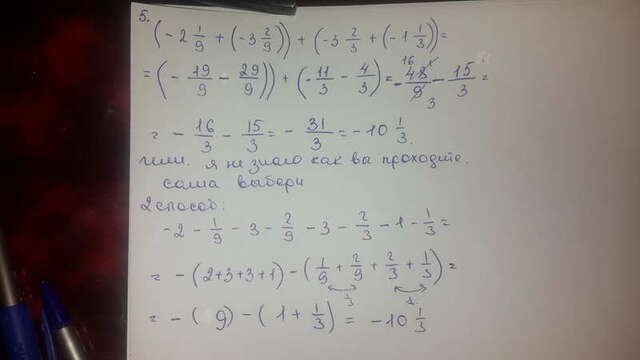 5. (-2 1/9 + (-3 2/9)) + (-3 2/3 + (-1 1/3)) =
= (- 19/9 - 29/9)) + (- 11/3 - 4/3) = - 48/9 - 15/3 =
16 3
= - 16/3 - 15/3 = - 31/3 = -10 1/3.
или. я не знаю как вы проходите.
сама выбери
2 способ:
-2 - 1/9 - 3 - 2/9 - 3 - 2/3 - 1 - 1/3 =
= - (2+3+3+1) - (1/9 + 2/9 + 2/3 + 1/3) =
1/3
= - (9) - (1 + 1/3) = -10 1/3